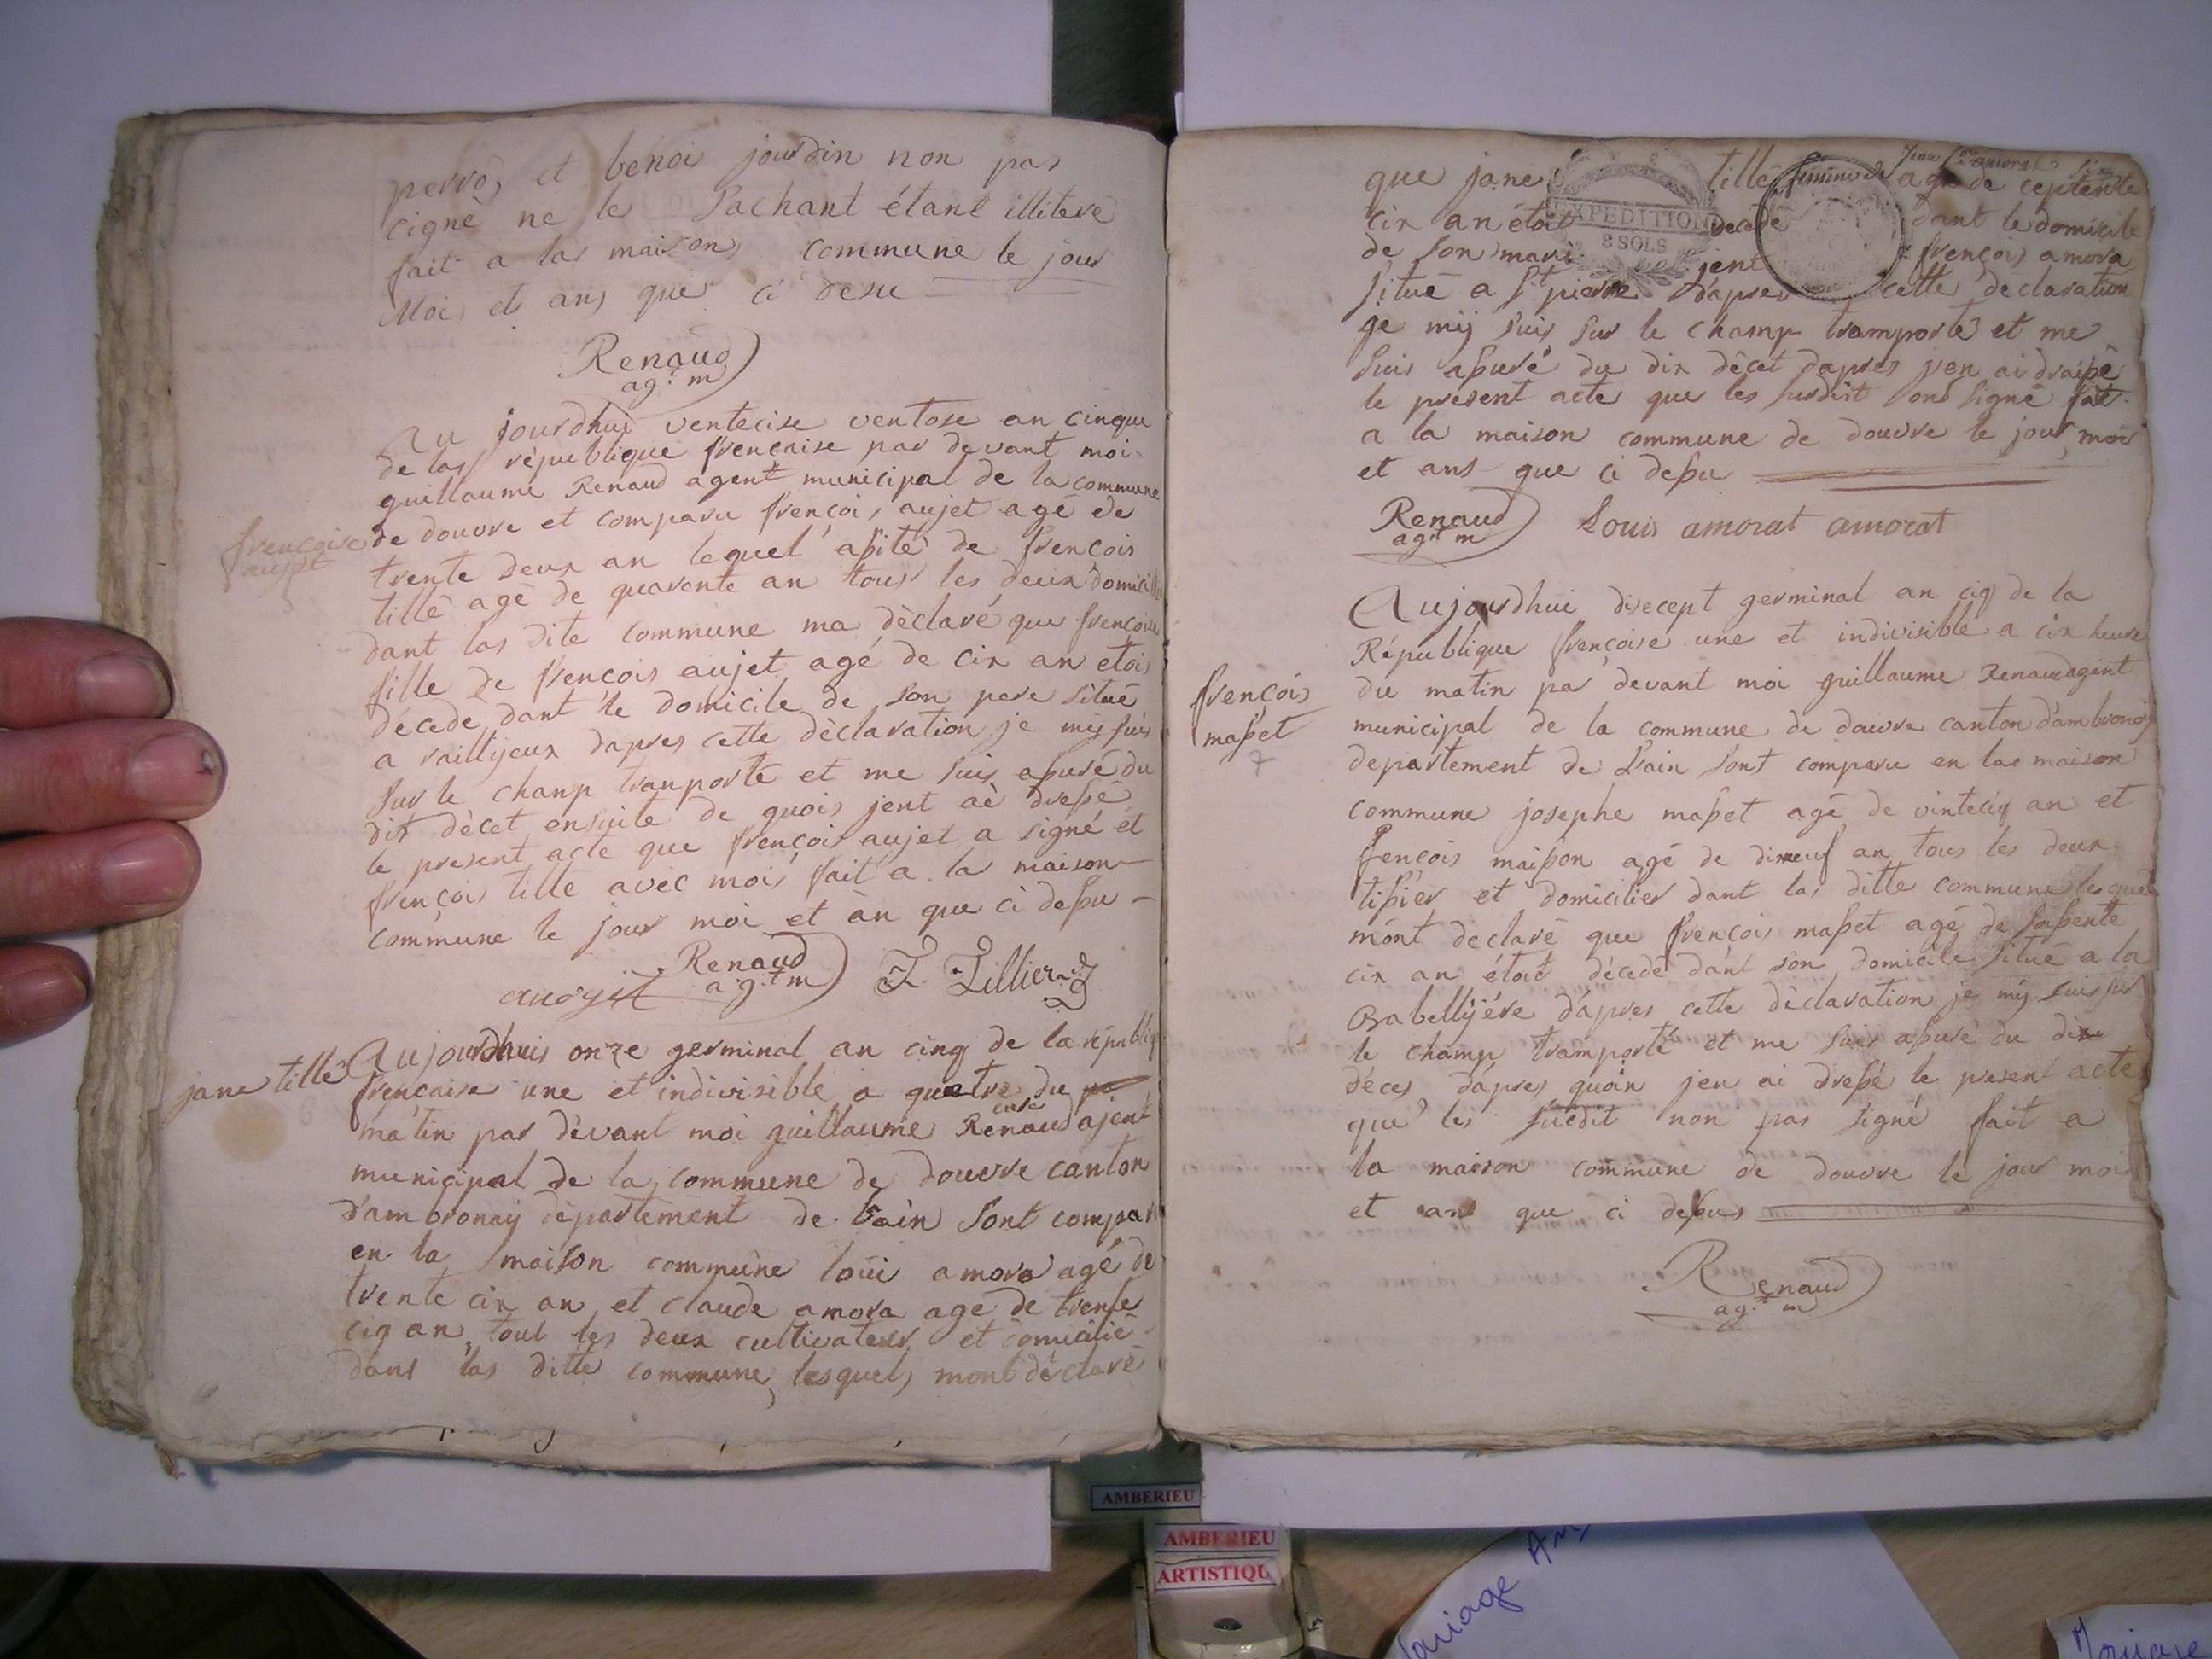 perro, et benoi jourdin non pas
cignè ne le Sachant étant illiterè
fait a las maison, commune le jour
Moi, et ans que ci desu
Renaud
ag.t m
Au jourdhui ventecise ventose an cinque
de las république frençaise par devant moi
guillaume Renaud agent municipal de la commune
de douvre et comparu frençoi, aujet agé de
françoise
aujet
trente deux an lequel asité de frençois
tillé agé de quarente an tous les deux domicili
dant las dite commune ma dèclaré que frençoise
fille de frençois aujet agé de cix an etois
décede dant le domicile de son pere situé
a vaillyeux dapres cette dèclaration je mij suis
sur le chanp tranporté et me suis asuré du
dix dècet ensuite de quois jent aè dressé
le present acte que frençois aujet a signé et
frençois tillé avec mois fait a la maison
commune le jour moi et àn que ci dessu
Renaud
ag.t m
auogit
F. Tillier
jane tillé
Aujourdhuis onze germinal an cinq de la républiq
française une et indivisible a quatre du
eure
mátin par dèvant moi guillaume Renaud ajent
municipal de la commune de douvre canton
d'ambronaÿ dèpartement de lain sont compar
en la maison commune loüi amora agé de
trente cix an et claude amora age de trente
ciq an tout les deux cultivateur et domicilié
dans las ditte commune lesquels mont dèclaré
que jane tillé fimme de Jean amorat agé de ceptente
EXPEDITION
8 SOLS
cix an étoit décédé dant le domicile
de son mari jent frençois amora
situé a St pierre dapres cette declaration
je mij suis sur le champ tramporté et me
suis asuré du dix décet dapres jen ai draissé
le present acte que les surdit ond signé fait
a la maison commune de douvre le jour moi
et ans que ci dessu
Renaud
ag.t m
Louis amorat amorat
Aujourdhui disecept germinal an ciq de la
République frençoise une et indivisible a cix heure
frençois
masset
7
du matin par devant moi guillaume Renaud agent
municipal de la commune de douvre canton d'ambronay
departement de Lain sont comparu en las maison
commune josephe masset agé de vinteciq an et
fençois maisson agé de dixneuf an tous les deux
tissier et domicilier dant las ditte commune lesquel
mont declaré que frençois masset agé de soissente
cix an étoit décedé dant son domicile situé a la
Babellyére d'apres cette dèclaration je mij suis sur
le champ tramporté et me suis asuré du dix
déces d'apres quoin jen ai dressé le present acte
que les suedit non pas signé fait a
la maison commune de douvre le jour moi
et ans que ci dessus
Renaud
ag.t m
AMBERIEU
AMBERIEU
ARTISTIQU